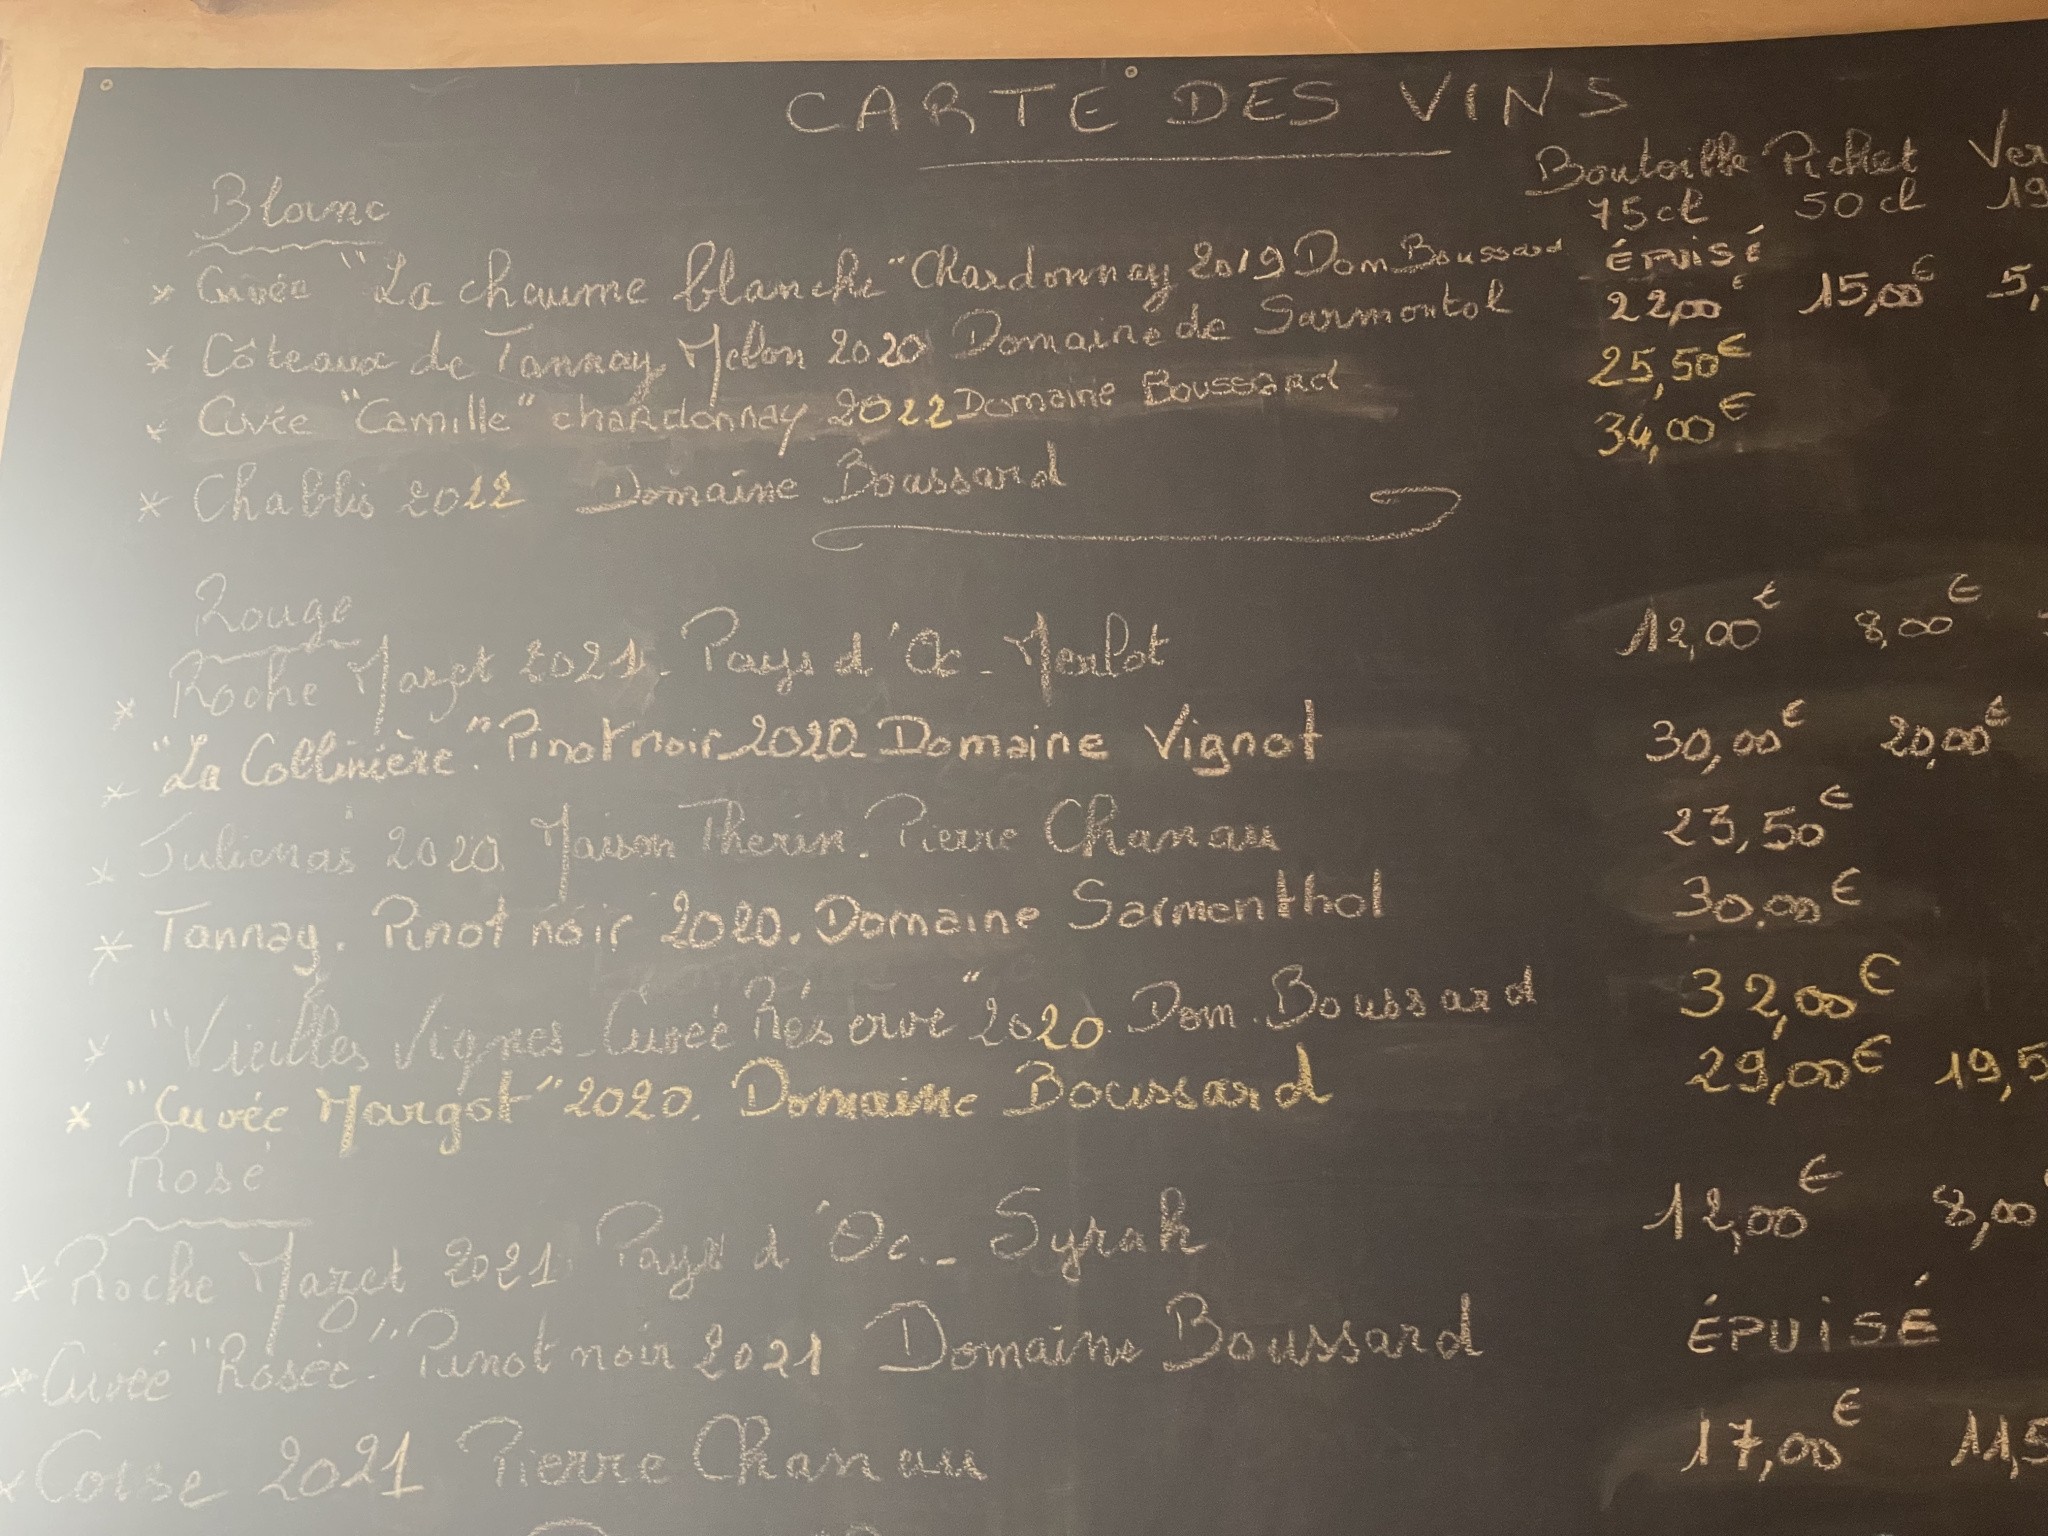 CARTE DES VINS
Bouteille Pichet Ver
75cl 50cl 19
Blanc
* Cuvée "La chaume blanche" Chardonnay 2019 Dom Boussard ÉPUISÉ
* Côteaux de Tannay Melon 2020 Domaine de Sarmontol 22,00€ 15,00€ 5,
* Cuvée "Camille" chardonnay 2022 Domaine Boussard 25,50€
* Chablis 2022 Domaine Boussard 34,00€
Rouge
* Roche Mazet 2021. Pays d'Oc - Merlot 12,00€ 8,00€
* "La Collinière". Pinot noir 2020 Domaine Vignot 30,00€ 20,00€
* Julienas 2020. Maison Therin. Pierre Chanau 23,50€
* Tannay. Pinot noir 2020. Domaine Sarmenthol 30,00€
* "Vieilles Vignes - Cuvée Réserve" 2020. Dom. Boussard 32,00€
* "Cuvée Margot" 2020. Domaine Boussard 29,00€ 19,5
Rosé
* Roche Mazet 2021 Pays d'Oc - Syrah 12,00€ 8,00
* Cuvée "Rosée". Pinot noir 2021 Domaine Boussard ÉPUISÉ
* Corse 2021 Pierre Chanau 17,00€ 11,5